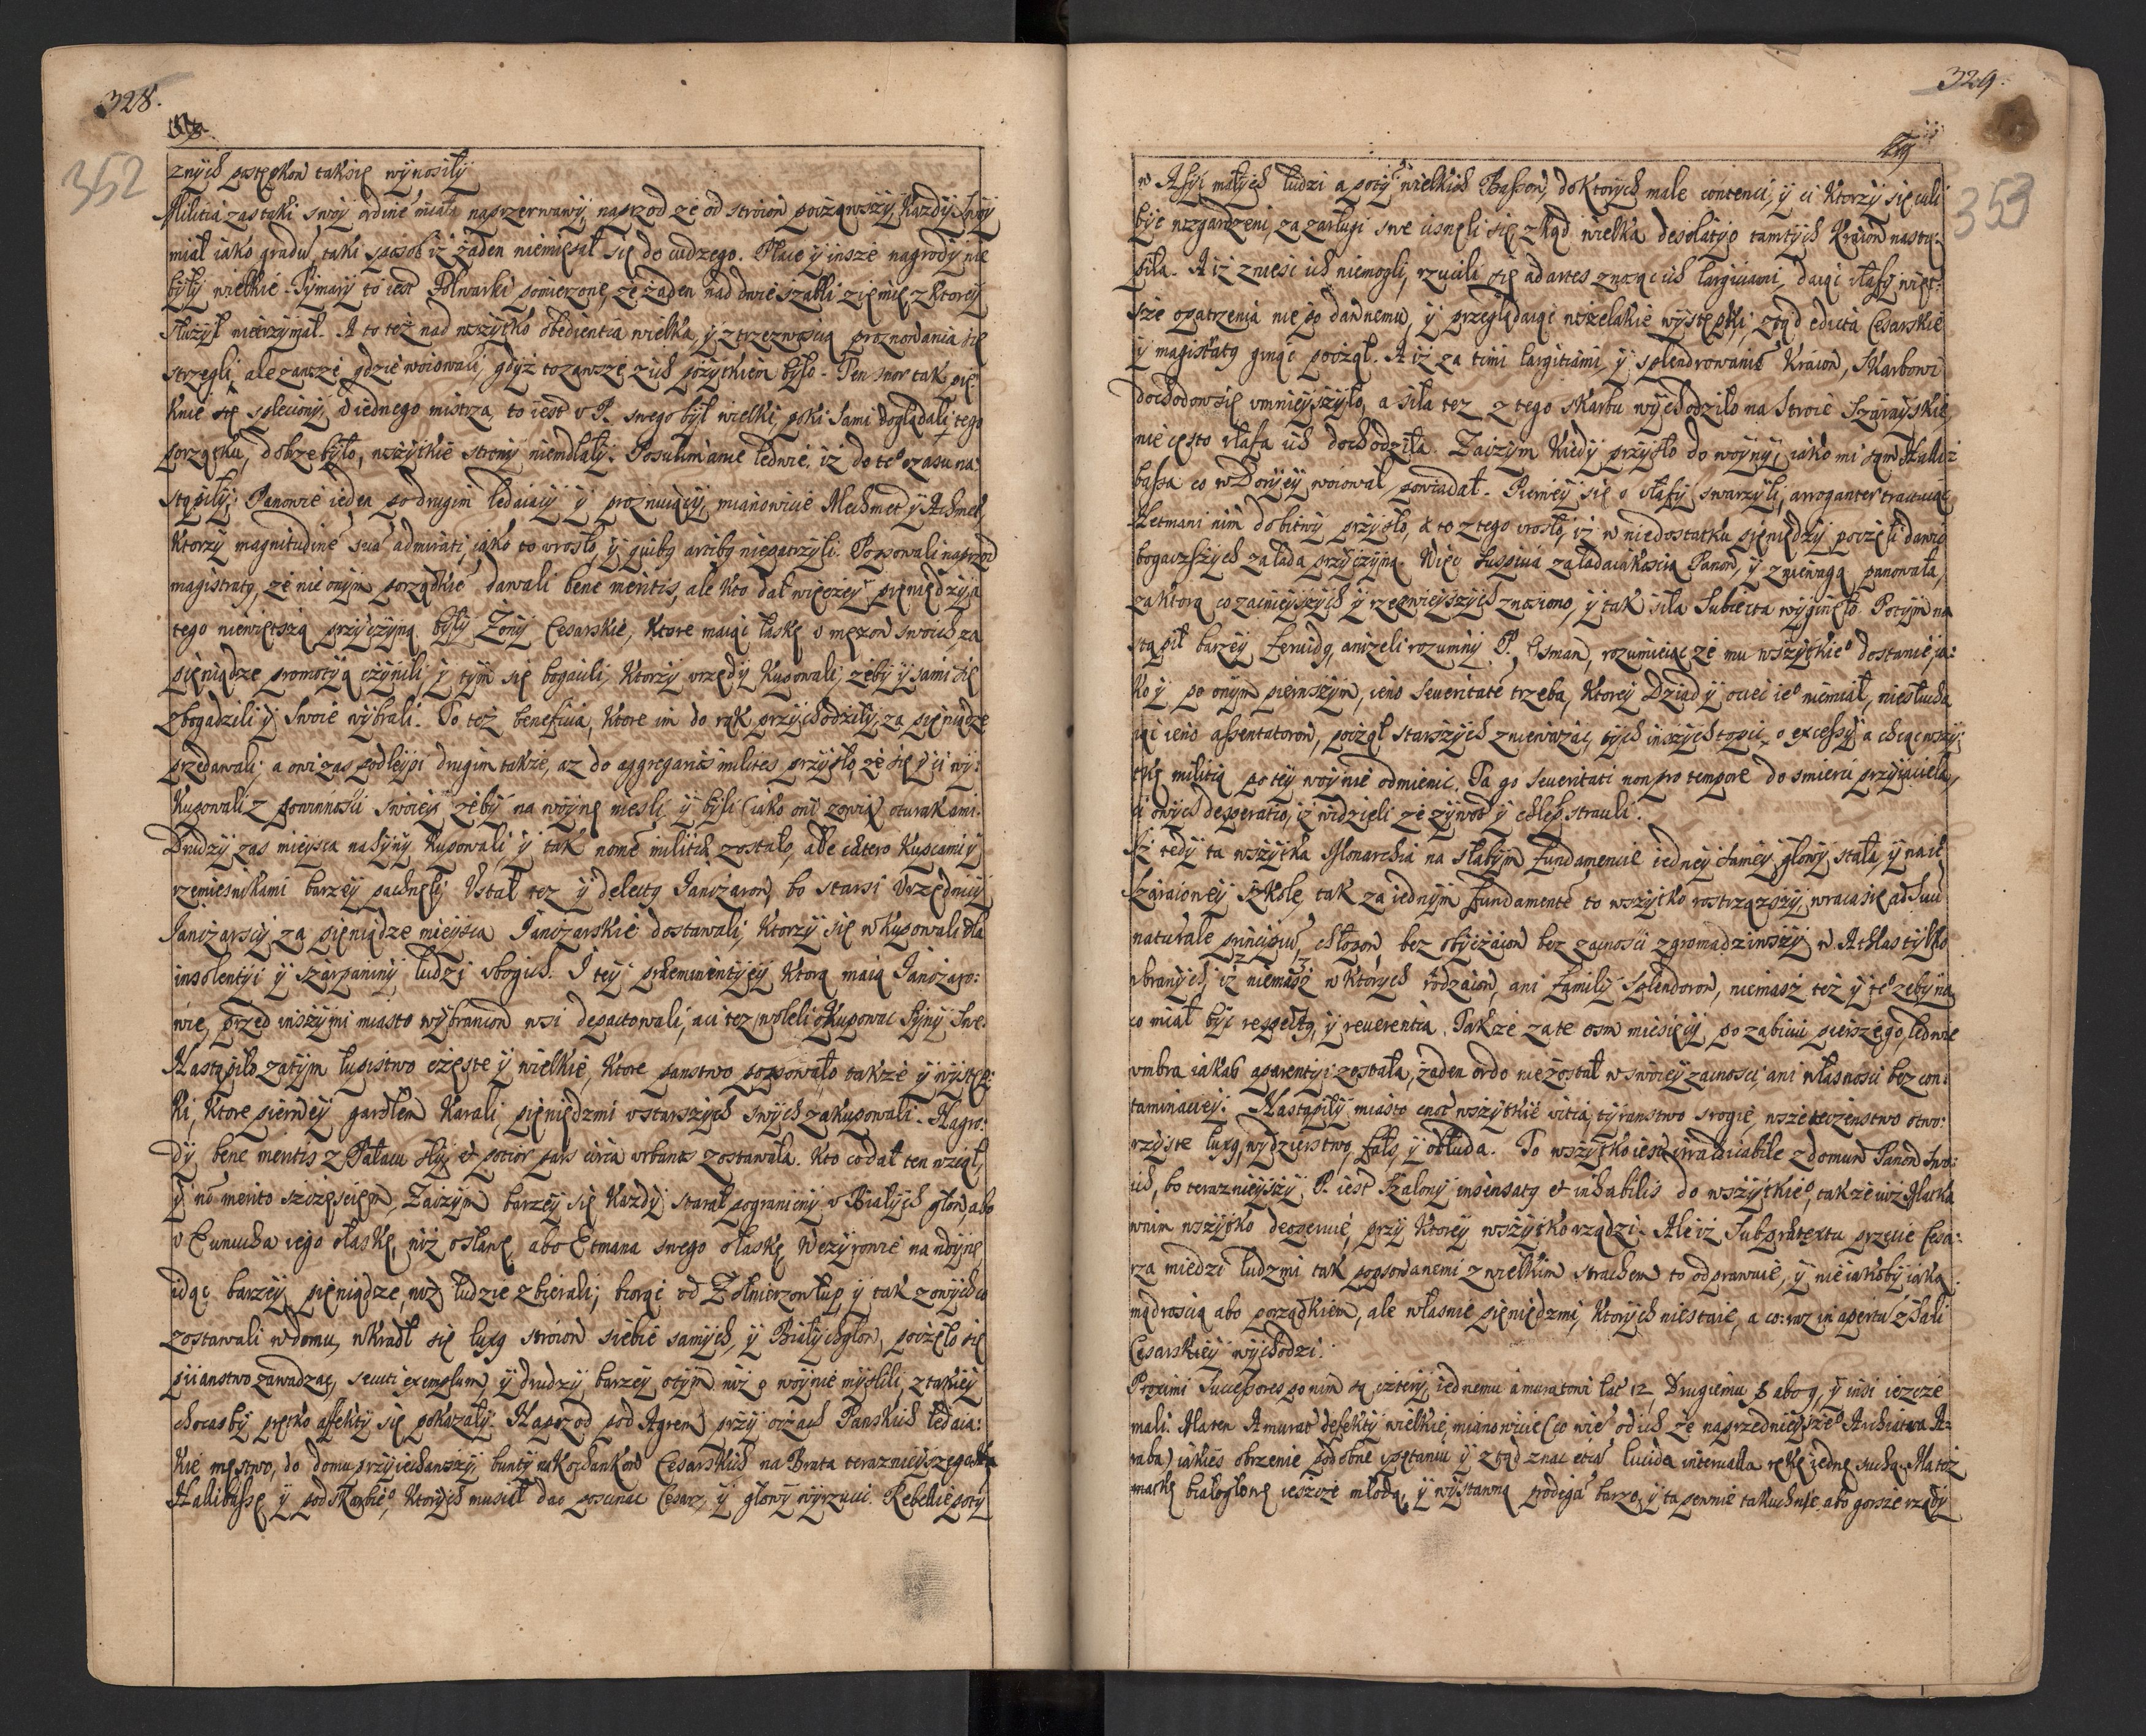 328.
352
znÿch postępkow taksię wÿnosiłÿ
Militia zas taki swoÿ ordine miała nieprzerwanÿ, naprzod ze od stroiow począwszÿ, Kazdÿ swoÿ
miał iako gradu, taki sposob iż żaden niemięsał się do cudzego. Płace ÿ insze nagrodÿ nie
bÿłÿ wielkie. Tÿmarÿ to iest Folwarki pomierzone, ze żaden nad dwie szabli zięmię z ktoreÿ
służÿł nietrzÿmał. A to też nad wszÿtko obedientia wielka, ÿ z trzezwoscią proznowania się
strzegli, ale zawsze gdzie woiowali, gdÿż to zawsze z ich pożÿtkiem bÿło. Ten snor tak pię
knie się spleciony, od iednego mistrza, to iest v P. swego bÿł wielki, poki sami doglądali tego
porządku, dobrze bÿło, wszÿtkie stronÿ niemdlałÿ. Po sulimanie ledwie, iż do te⁰ czasu na
stąpiłÿ; Panowie ieden po drugim ledaiacÿ ÿ proznuiącÿ, mianowicie Mechmet ÿ Achmet
Ktorzÿ magnitudine sua admirati, iako to wrosło, ÿ quibq artibq niepatrzÿli. Popsowali naprzod
magistratq, ze nie onÿm porządkie dawali bene meritis, ale kto dał więczeÿ pięniędzÿ, a
tego niewiętszą przÿczÿną bÿłÿ Zonÿ Cesarskie, Ktore maiąc łaskę v mężow swoich, za
pięniądze promotÿą czÿnili, ÿ tÿm się bogacili, Ktorzÿ vrzędÿ Kupowali, zebÿ ÿ sami się
zbogacili ÿ swoie wÿbrali. To też beneficia, Ktore im do rąk przÿchodziłÿ, za pięniądze
przedawali; a owi zas podleÿsi drugim takze, az do aggregatos milites przÿszło, że się ÿ ci wÿ:
kupowali z powinnosci swoieÿ żebÿ na woÿnę nieśli, ÿ bÿli (iako oni zowią) oturakami.
Drudzÿ zas mieÿsca nasÿnÿ Kupowali, ÿ tak nome militiæ zostało, ale cætero Kupcami ÿ
rzemiesnikami barzeÿ pachnęli. Vstał tez ÿ delectq Janczarow, bo starsi Vrzędnicÿ
Janczarscÿ za pięniądze mieÿsca Janczarskie dostawali, Ktorzÿ się wkupowali dla
insolentÿi ÿ szarpaninÿ ludzi vbogich. I teÿ præeminentÿeÿ Ktorą maią Janczaro:
wie, przed inszÿmi miasto wÿbranow wsi depactowali, a ci tez woleli okupowac Sÿnÿ swe.
Nastąpiło zatÿm łupistwo częste ÿ wielkie, Ktore panstwo popsowało takze ÿ wÿstęp:
ki, Ktore pierweÿ gardłem Karali, pięniędzmi v starszÿch swÿch zakupowali. Nagro:
dÿ bene meritis z Pałacu siłą et potior pars circa urbanos zostawała. Kto co dał ten wziął,
ÿ no merito sczęsciem. Zaczÿm barzeÿ się Kazdÿ starał pogranicnÿ v Białÿch głow, abo
v Eunucha iego ołaskę, niż osłanę abo Etmana swego ołaskę. Wezÿrowie na woÿnę
idąc barzeÿ pięniądze, niż ludzie zbierali; biorąc od Zołnierzow łup, ÿ tak z owÿch co
zostawali w domu, wkradł się luxq stroiow siebie samÿch, ÿ Białÿchgłow, poczęło się
piianstwo zawadzac, secuti exemplum ÿ drudzÿ barzeÿ otÿm niż o woÿnie mÿslili, z takieÿ
chocasbÿ prętko affektÿ się pokazałÿ. Naprzod pod Agrem przÿ oczach Panskich ledaia:
kie męstwo, do domu przÿiechawszÿ, buntÿ na kochankow Cesarskich na Brata teraznieÿszego
Halibaszę ÿ podskarbie⁰, Ktorÿch musiał dac poscinac Cesarz, ÿ głowÿ wÿrzuci. Rebelie potÿ
329.
353
w Asÿi małÿch ludzi a potÿ wielkich Bassow, do ktorÿch male contenci, ÿ ci Ktorzÿ się culi
bÿc wzgardzeni, za zasługi swe cisnęli się zkąd wielka desolatÿo tamtÿch Kraiow nastą:
piła. A iż znieśc ich niemogli, rzucili się ad artes znosząc ich largitiami, daiąc stafÿ więt:
sze opatrzenia nie po dawnemu, ÿ przeglądaiąc wszelakie wÿstępki, ztąd edicta Cesarskie
ÿ magistatq ginąc począł. A iż za timi largitiami, ÿ splendrowanie Kraiow, Skarbowi
dochodow się vmnieÿszÿło, a siła tez z tego skarbu wÿchodziło na Stroie Szaraÿskie,
nie często stafa ich dochodziła. Zaczÿm Kiedÿ przÿszło do woÿnÿ, iako mi sam Hallii
bassa co w Persÿeÿ woiował, powiadał. Pierweÿ się o stafÿ swarzÿli, arroganter tractuiąc
Hetmani nim do bitwÿ przÿszło, & to z tego vrosło, iż w niedostatku pięniędzÿ poczęli dawic
bogaczszÿch za lada przÿczÿną. Więc suspicia za ladaiakoscią Panow, ÿ zniewagą panowała,
za ktorą co zacnieÿszÿch ÿ rzezwieÿszÿch znoszono, ÿ tak siła Subiecta wÿginęło. Potÿm na
stąpił barzeÿ fervidq, aniżeli rozumnÿ P. Osman, rozumieiąc że mu wszÿtkie⁰ dostanie, ia:
ko ÿ po onÿm pierwszÿm, ieno severitate trzeba, Ktoreÿ Dziad ÿ ociec ie⁰ niemiał, niesłucha
iąc ieno assentatorow, począł starszÿch znieważac, tÿch inszÿch topic, o excessÿ a chcąc wszÿ:
tkę militią po teÿ woÿnie odmienic. Ta go severitati non pro tempore do smierci przÿwiela,
a owÿch desperatio, iż widzieli że żÿwot ÿ chleb strauli.
Iż tedÿ ta wszÿtka Monarchia na słabÿm fundamencie iedneÿ sameÿ głowÿ stała, ÿ na ie⁰
szaraioweÿ szkole, tak za iednÿm fundamente to wszÿtko rostrząszÿ, wraca się ad suu
naturale principiu, chłopow bez obÿczaiow bez zacnosci zgromadziwszÿ w Athlas tÿlko
vbranÿch, iż niemasz w Ktorÿch rodzaiow, ani familÿ splendorow, niemasz też ÿ te⁰ zebÿ na
co miał bÿc respectq, ÿ reverentia. Takze za te osm miesięcÿ, po zabiciu pierszego, ledwie
vmbra iakaś aparentÿi została, żaden ordo nie został w swoieÿ zacnosci, ani własnosci bez con
taminacieÿ. Nastąpiłÿ miasto cnot wszÿtkie vitia, tÿranstwo srogie, wszeteczenstwo otwo:
rzÿste luxq, wÿdzierstwo, fals, ÿ obłuda. To wszÿtko iest irradicabile z domu Panow swo:
ich, bo teraznieÿszÿ P. iest szalonÿ insensatq et inhabilis do wszÿtkie⁰, takze iuż Matka
wnim wszÿtko desperuie, przÿ Ktoreÿ wszÿtko rządzi. Ale iż sub prætextu przecie Cesa:
rza miedzi ludzmi tak popsowanemi z wielkim strachem to odprawuie, ÿ nie iakobÿ iaką
mądroscią abo porządkiem, ale własnie pięniędzmi, Ktorÿch niestaie, a co: raz in apertu z Sali
Cesarskieÿ wÿchodzi.
Proximi Successores po nim są czterÿ, iednemu amuratowi lat 12, Drugiemu 8 abo 9, ÿ insi ieszcze
mali. Ma ten Amurat defektÿ wielkie, mianowicie (co wie⁰ od ich że naprzednieÿsze⁰ Archiatra A:
raba) iakies obrzenie podobne opętaniu ÿ ztąd znac etia lucida intervalla rękę iednę suchą. Ma toż
matkę białogłowę ieszcze młodą, ÿ wÿstawną prodiga barzo, ÿ ta pewnie takuchne abo gorsze rządÿ